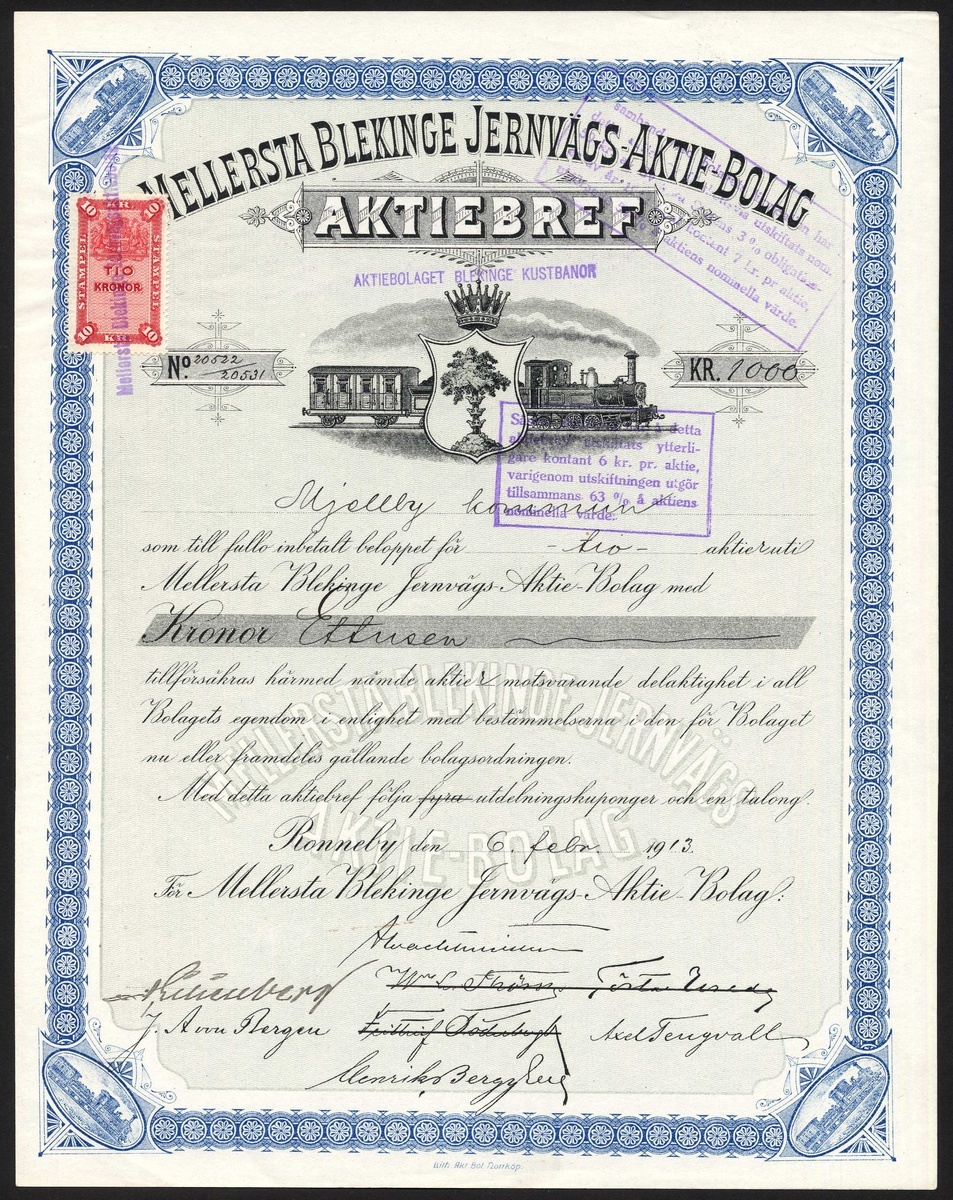 MELLERSTA BLEKINGE JERNVÄGS-AKTIE-BOLAG
AKTIEBREF
AKTIEBOLAGET BLEKINGE KUSTBANOR
10 KR 10
STÄMPEL STÄMPEL
TIO
KRONOR
10 KR 10
Mellersta Blekinge
samband
utskiftats nom.
3 % obligation
kontant 7 kr. pr aktie,
aktiens nominella värde.
No. 20522
20531
KR. 1000
detta
utskiftats ytterli-
gare kontant 6 kr. pr. aktie,
varigenom utskiftningen utgör
tillsammans 63 % å aktiens
nominella värde.
Mjellby kommun
som till fullo inbetalt beloppet för - tio - aktier uti
Mellersta Blekinge Jernvägs-Aktie-Bolag med
Kronor Ettusen
tillförsäkras härmed nämde aktier motsvarande delaktighet i all
Bolagets egendom i enlighet med bestämmelserna i den för Bolaget
nu eller framdeles gällande bolagsordningen.
Med detta aktiebref följa fyra utdelningskuponger och en talong.
MELLERSTA BLEKINGE JERNVÄGS
AKTIE-BOLAG
Ronneby den 6. febr. 1913.
För Mellersta Blekinge Jernvägs-Aktie-Bolag:
J. A von Bergen Axel Tengvall
Lith. Akt. Bol. Norrköp.